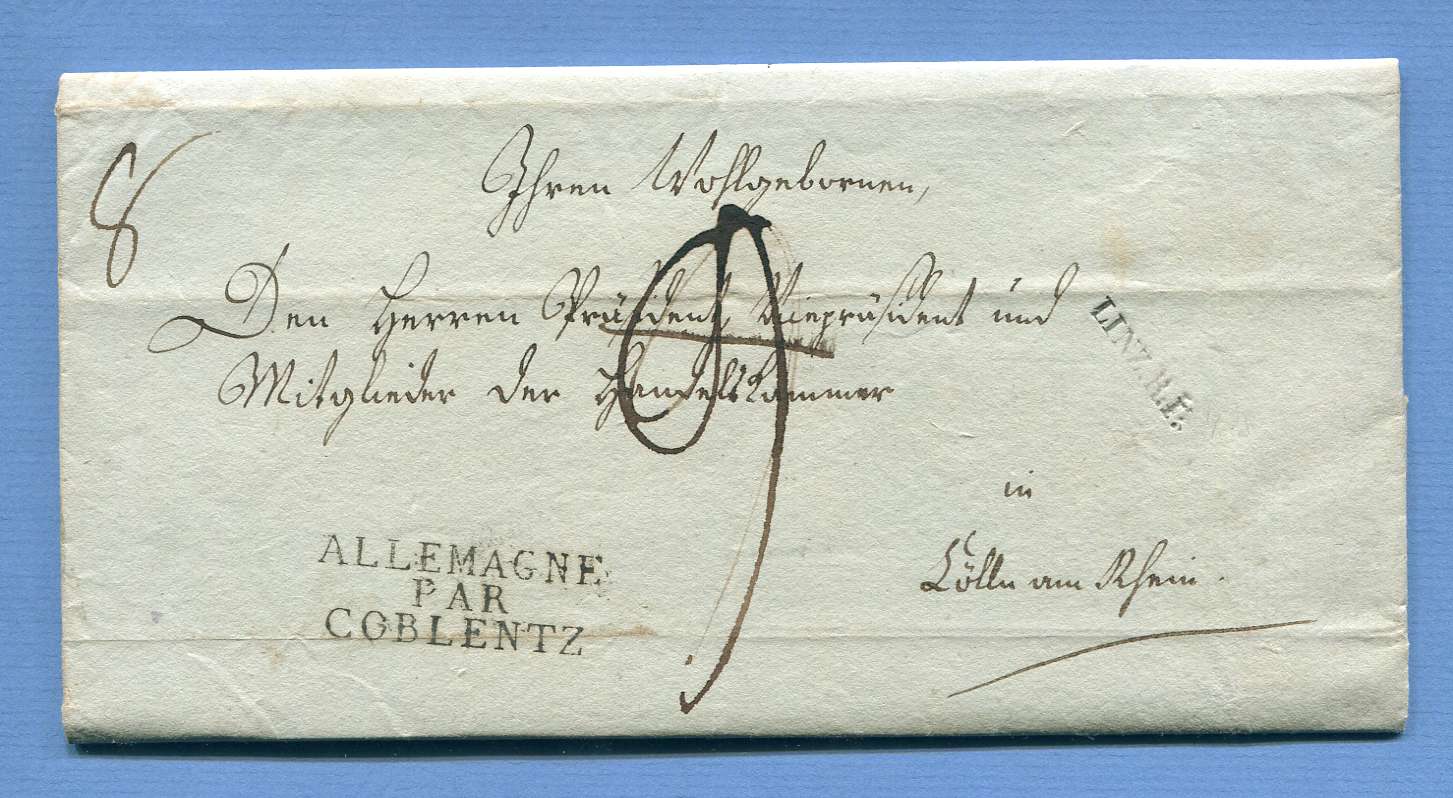 8
Ihren Wohlgebornen,
Den Herren Präsident, Vicepräsident und
Mitglieder der Handelskammer
9
LINZ.R.E.
in
Cölln am Rhein.
ALLEMAGNE
PAR
COBLENTZ